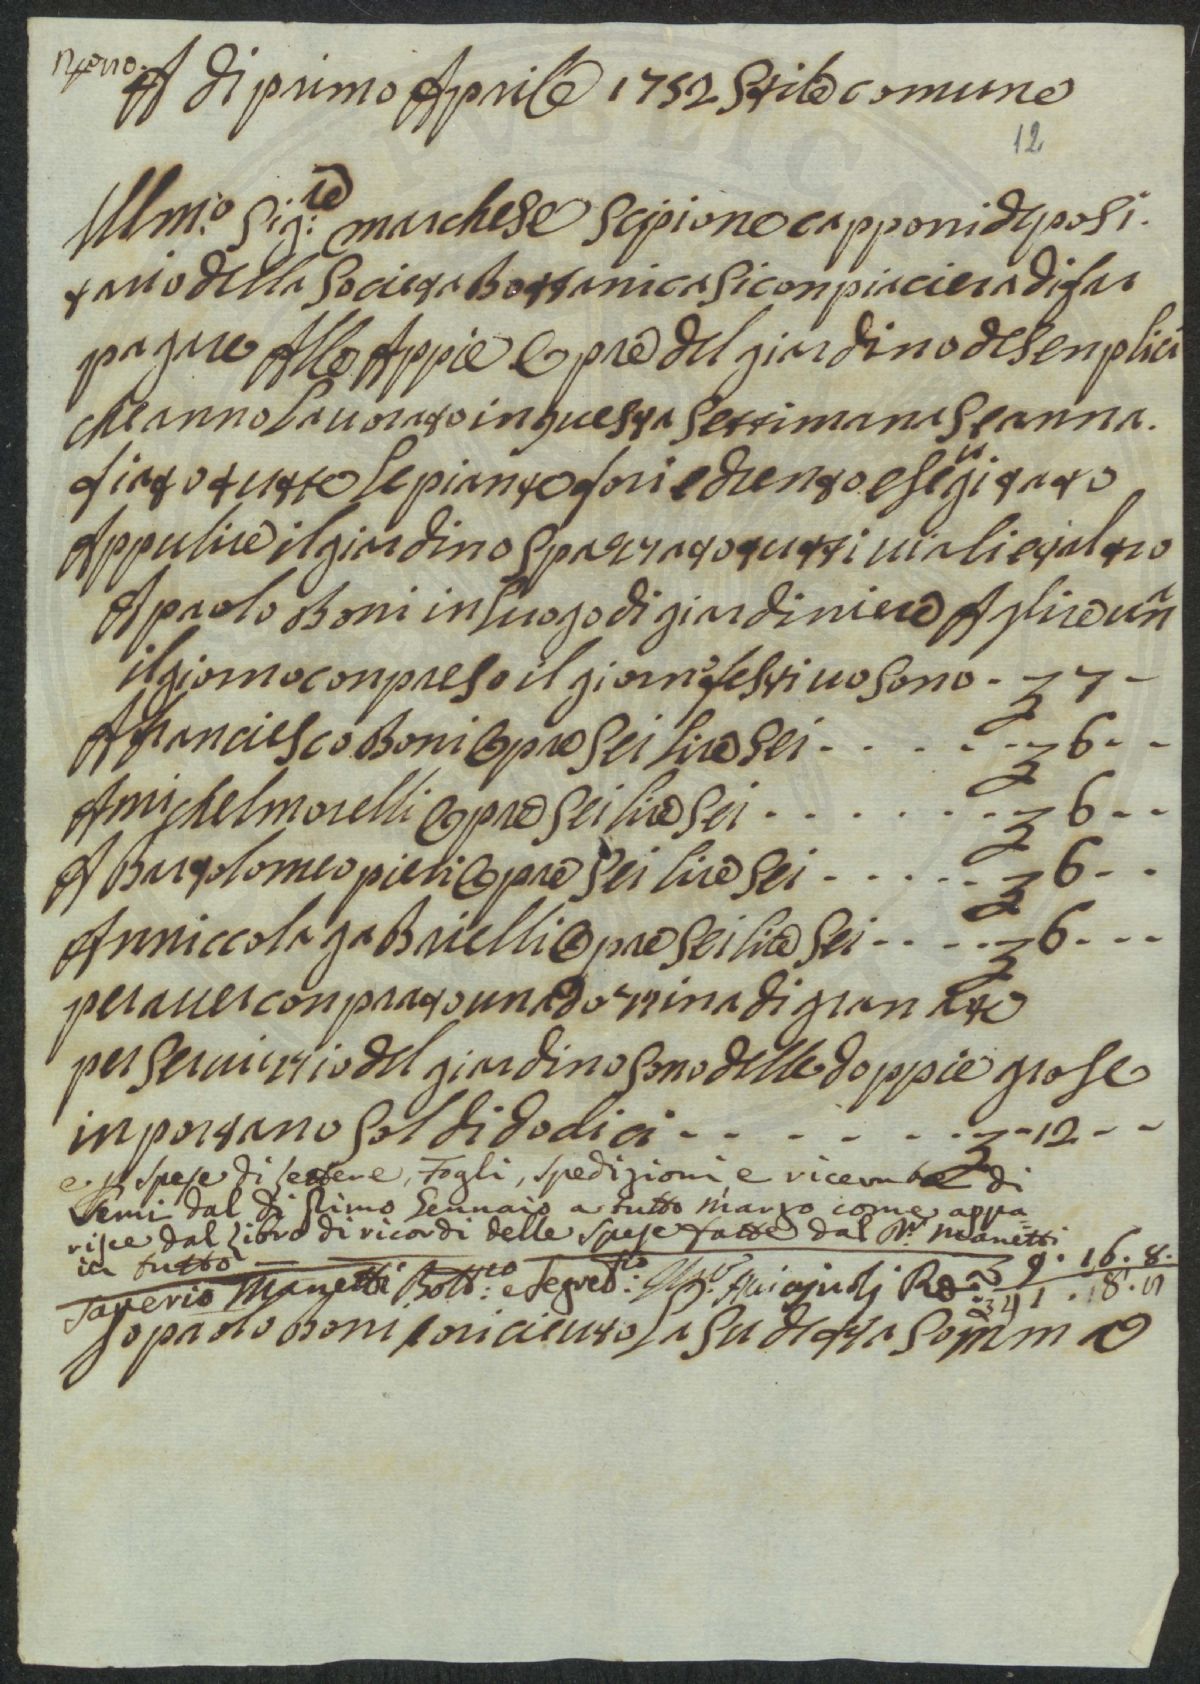 A di primo Aprile 1752 Stile comune
12
Illm:o Sig:re marchese Scipione capponi deposi.
tario della Societa Bottanica Si conpiaciera di far
pagare Alle Appie Opre del giardino de Senplici
che anno Lauorato in questa Settimana Se anna.
fiato tutte Le piante fori e drento e seguitato
Appulire il giardino Spazzato tutti uiali et altro
A paolo Boni in Luogo di giardiniere A lire una
il giorno conpreso il giorno festiuo sono - £ 7 -
A franciesco Boni Opre Sei Lire Sei - - - - - £ 6 - -
A michel morelli Opre Sei lire Sei - - - - - - - £ 6 - -
A Bartolomeo pieri Opre Sei lire Sei - - - - - £ 6 - -
A nniccola gabrielli Opre Sei lire Sei - - - - £ 6 - - -
per auer conprato una dozzina di granate
per Seruizzio del giardino sono delle doppie grose
inportano Soldi dodici - - - - - - - £ - 12 - -
e p spese di lettere, Fogli, spedizioni e ricevute di
Semi dal di Primo Gennaio a tutto Marzo come appa
risce dal Libro di ricordi delle Spese fatte dal Dr. Manetti
in tutto - - - £ 9. 16. 8.
Saverio Manetti Bott:co e Segret:rio £ 41. 18. 8
Io paolo Boni o ricieuto La Su detta Somma